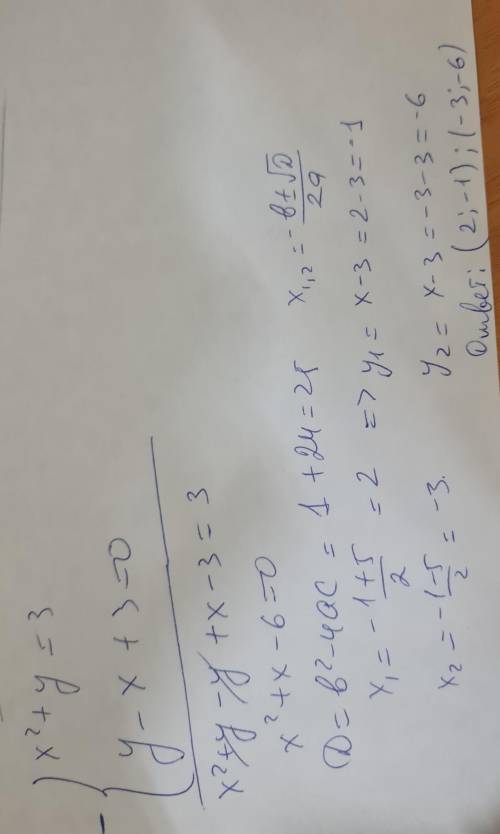 x² + y = 3
y - x + 3 = 0
x² + y - y + x - 3 = 3
x² + x - 6 = 0
D = b² - 4ac = 1 + 24 = 25 x₁,₂ = (-b ± √D)/2a
x₁ = (-1 + 5)/2 = 2 => y₁ = x - 3 = 2 - 3 = -1
x₂ = (-1 - 5)/2 = -3. y₂ = x - 3 = -3 - 3 = -6
Ответ: (2; -1); (-3; -6)